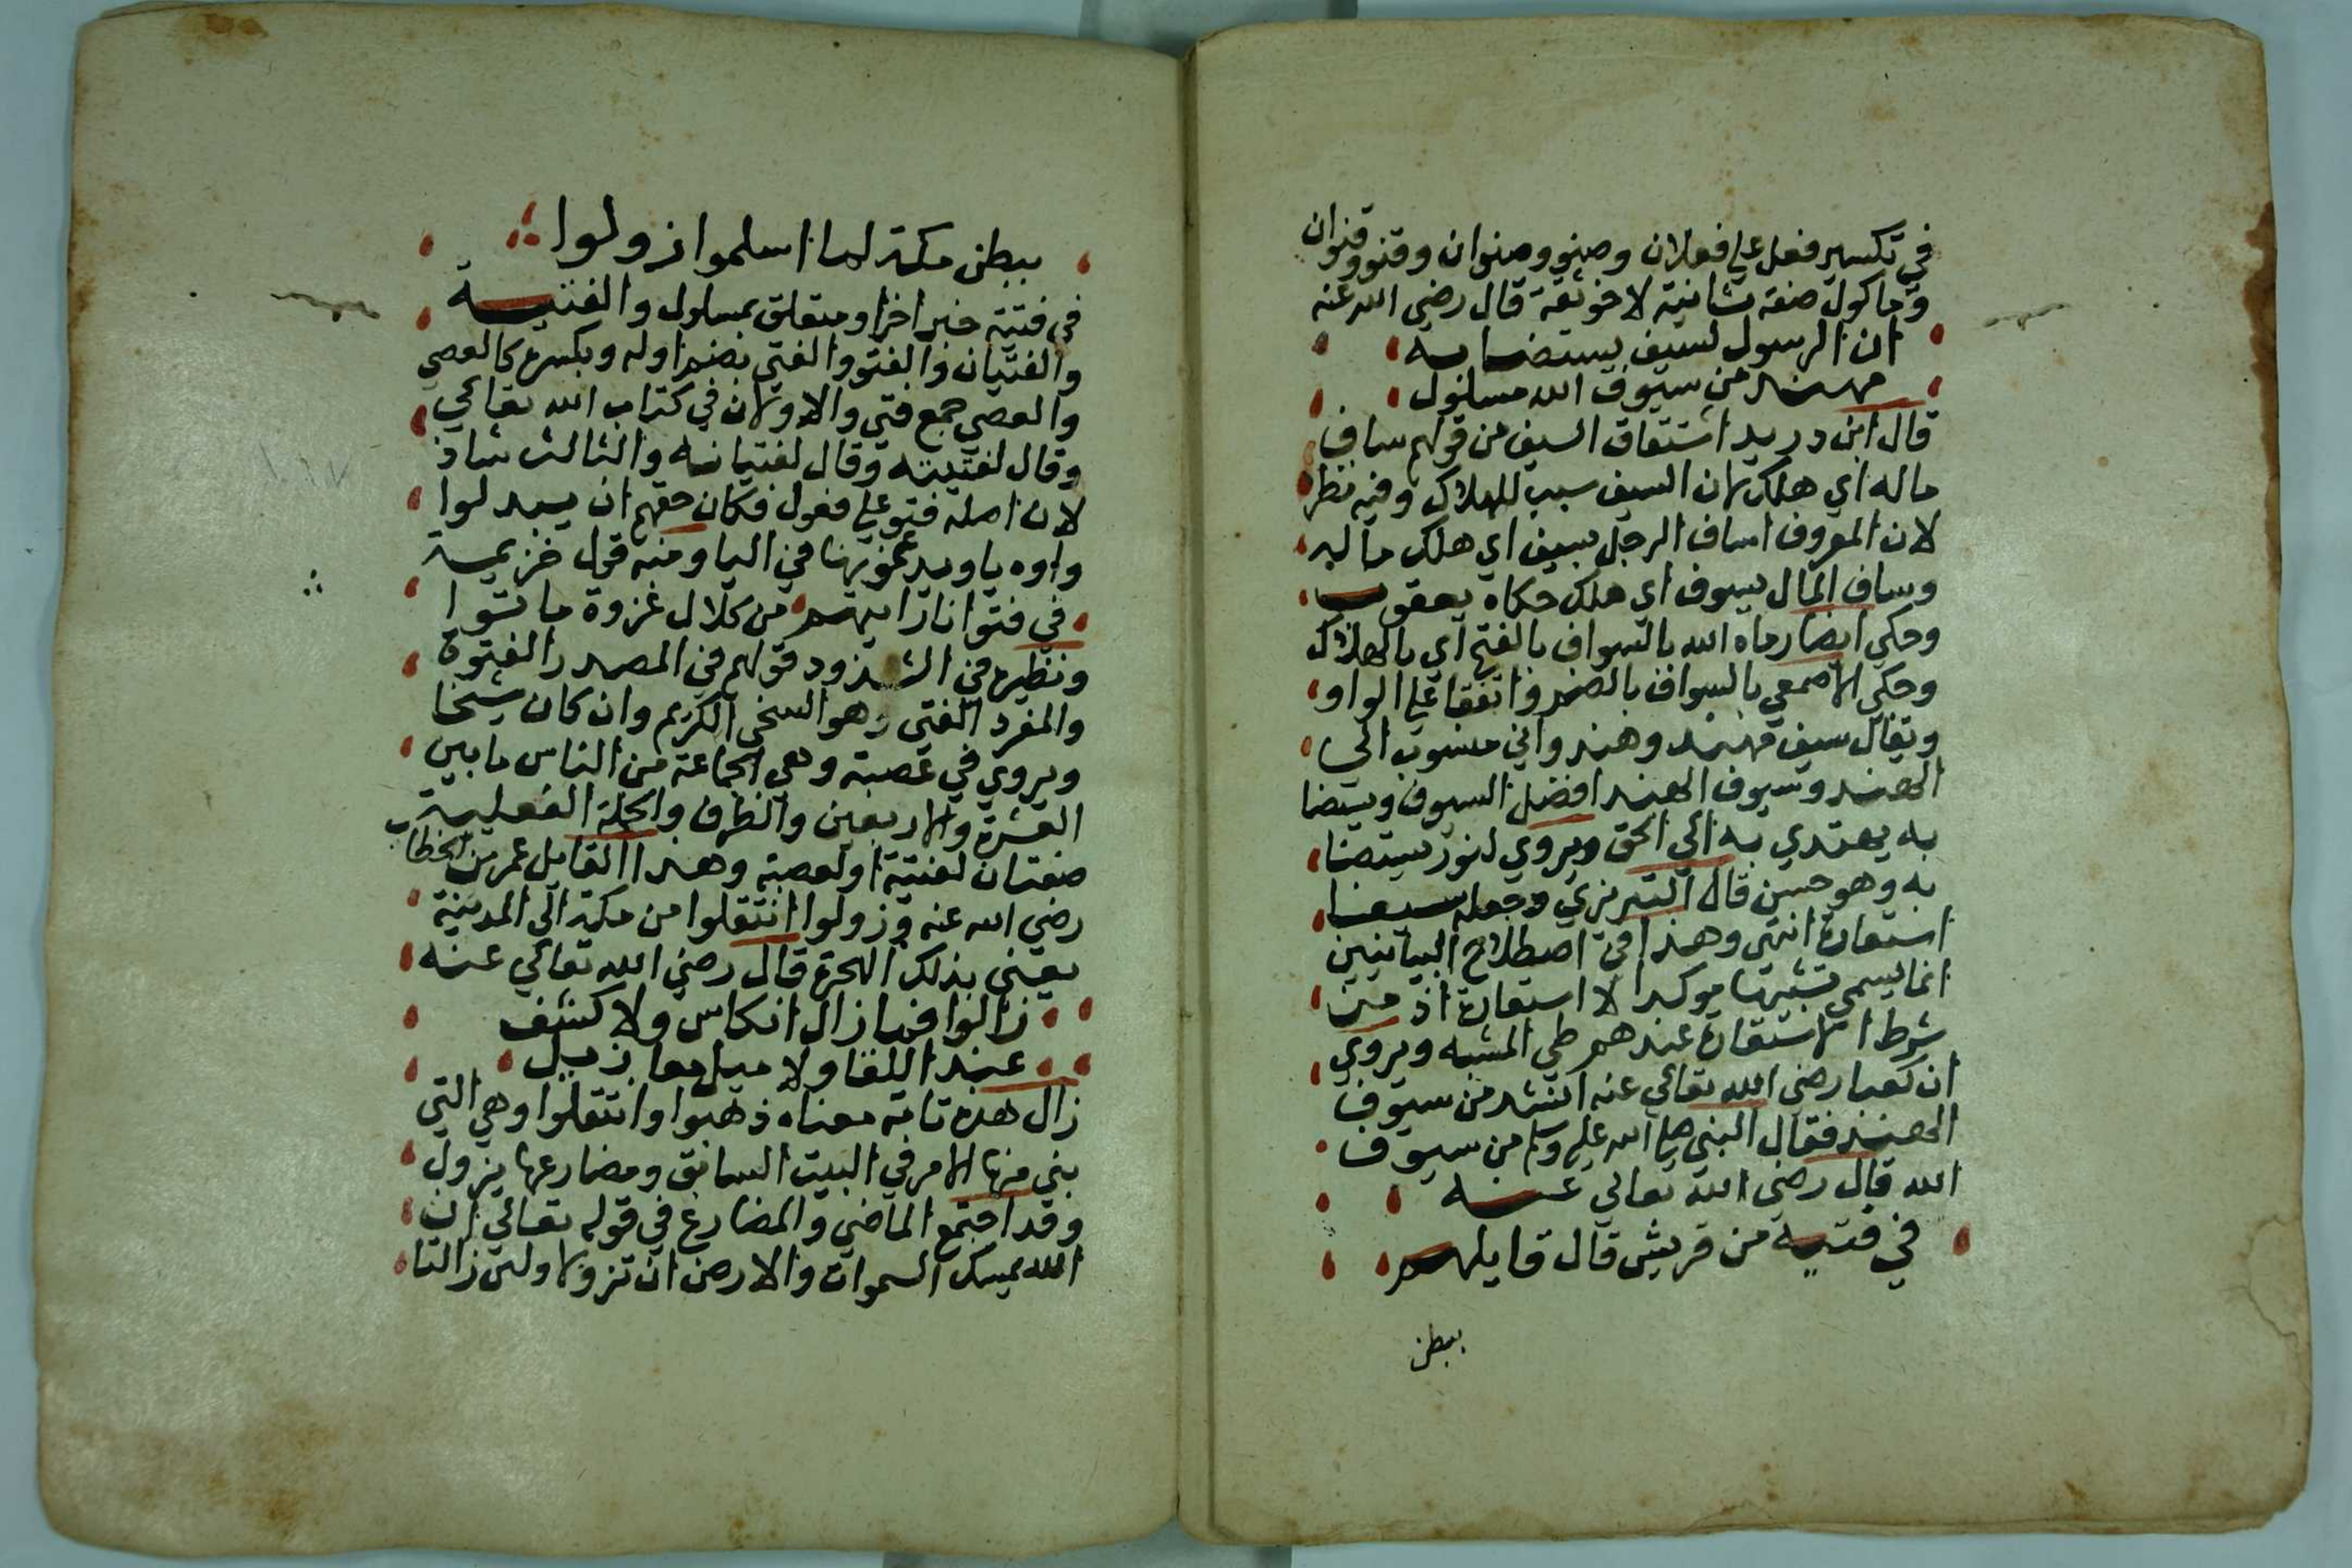 في تكسير فعل علي فعلان وصنو وصنوان وقنو وقنوان
وماكول صفة ثانية لاخو ثقة قال رضي الله عنه
ان الرسول لسيف يستضا به
مهند من سيوف الله مسلول
قال ابن دريد اشتقاق السيف من قولهم ساف
ماله اي هلك لان السيف سبب للهلاك وفيه نظر
لان المعروف اساف الرجل يسيف اي هلك ماله
وساف المال يسوف اي هلك حكاه يعقوب
وحكي ايضا رماه الله بالسواف بالفتح اي بالهلاك
وحكي الاصمعي بالسواف بالضم واتفقا علي الواو
ويقال سيف مهند وهندواني منسوب الي
الهند وسيوف الهند افضل السيوف ويستضا
به يهتدي به الي الحق ويروي لنور يستضا
به وهو حسن قال التبريزي وجعله سيفا
استعارة انتهي وهذا في اصطلاح البيانيين
انما يسمي تشبيها موكدا لا استعارة اذ من
شرط الاستعارة عندهم طي المشبه ويروي
ان كعبا رضي الله تعالي عنه انشد من سيوف
الهند فقال النبي صلي الله عليه وسلم من سيوف
الله قال رضي الله تعالي عنه
في فتية من قريش قال قايلهم
ببطن
ببطن مكة لما اسلموا زولوا
في فتية خبر اخر او متعلق بمسلول والفتية
والفتيان والفتو والفتي بضم اوله وبكسره كالعصي
والعصي جمع فتي والاولان في كتاب الله تعالي
وقال لفتيته وقال لفتيانه والثالث شاذ
لان اصله فتوو علي فعول فكان حقهم ان يبدلوا
واوه يا ويدغمونها في اليا ومنه قول خزيمة
في فتو انا رابيهم من كلال غزوة ماتوا
ونظيره في الشذوذ قولهم في المصدر الفتوة
والمفرد الفتي وهو السخي الكريم وان كان شيخا
ويروي في عصبة وهي الجماعة من الناس ما بين
العشرة والاربعين والظرف والجلة الفعلية
صفتان لفتية او لعصبة وهذا القايل عمر بن الخطاب
رضي الله عنه وزولوا انتقلوا من مكة الي المدينة
يعني بذلك الهجرة قال رضي الله تعالي عنه
زالوا فما زال انكاس ولا كشف
عند اللقا ولا ميل معازيل
زال هذه تامة معناه ذهبوا وانتقلوا وهي التي
بني منها الامر في البيت السابق ومضارعها يزول
وقد اجتمع الماضي والمضارع في قوله تعالي ان
الله يمسك السموات والارض ان تزولا ولين زالتا